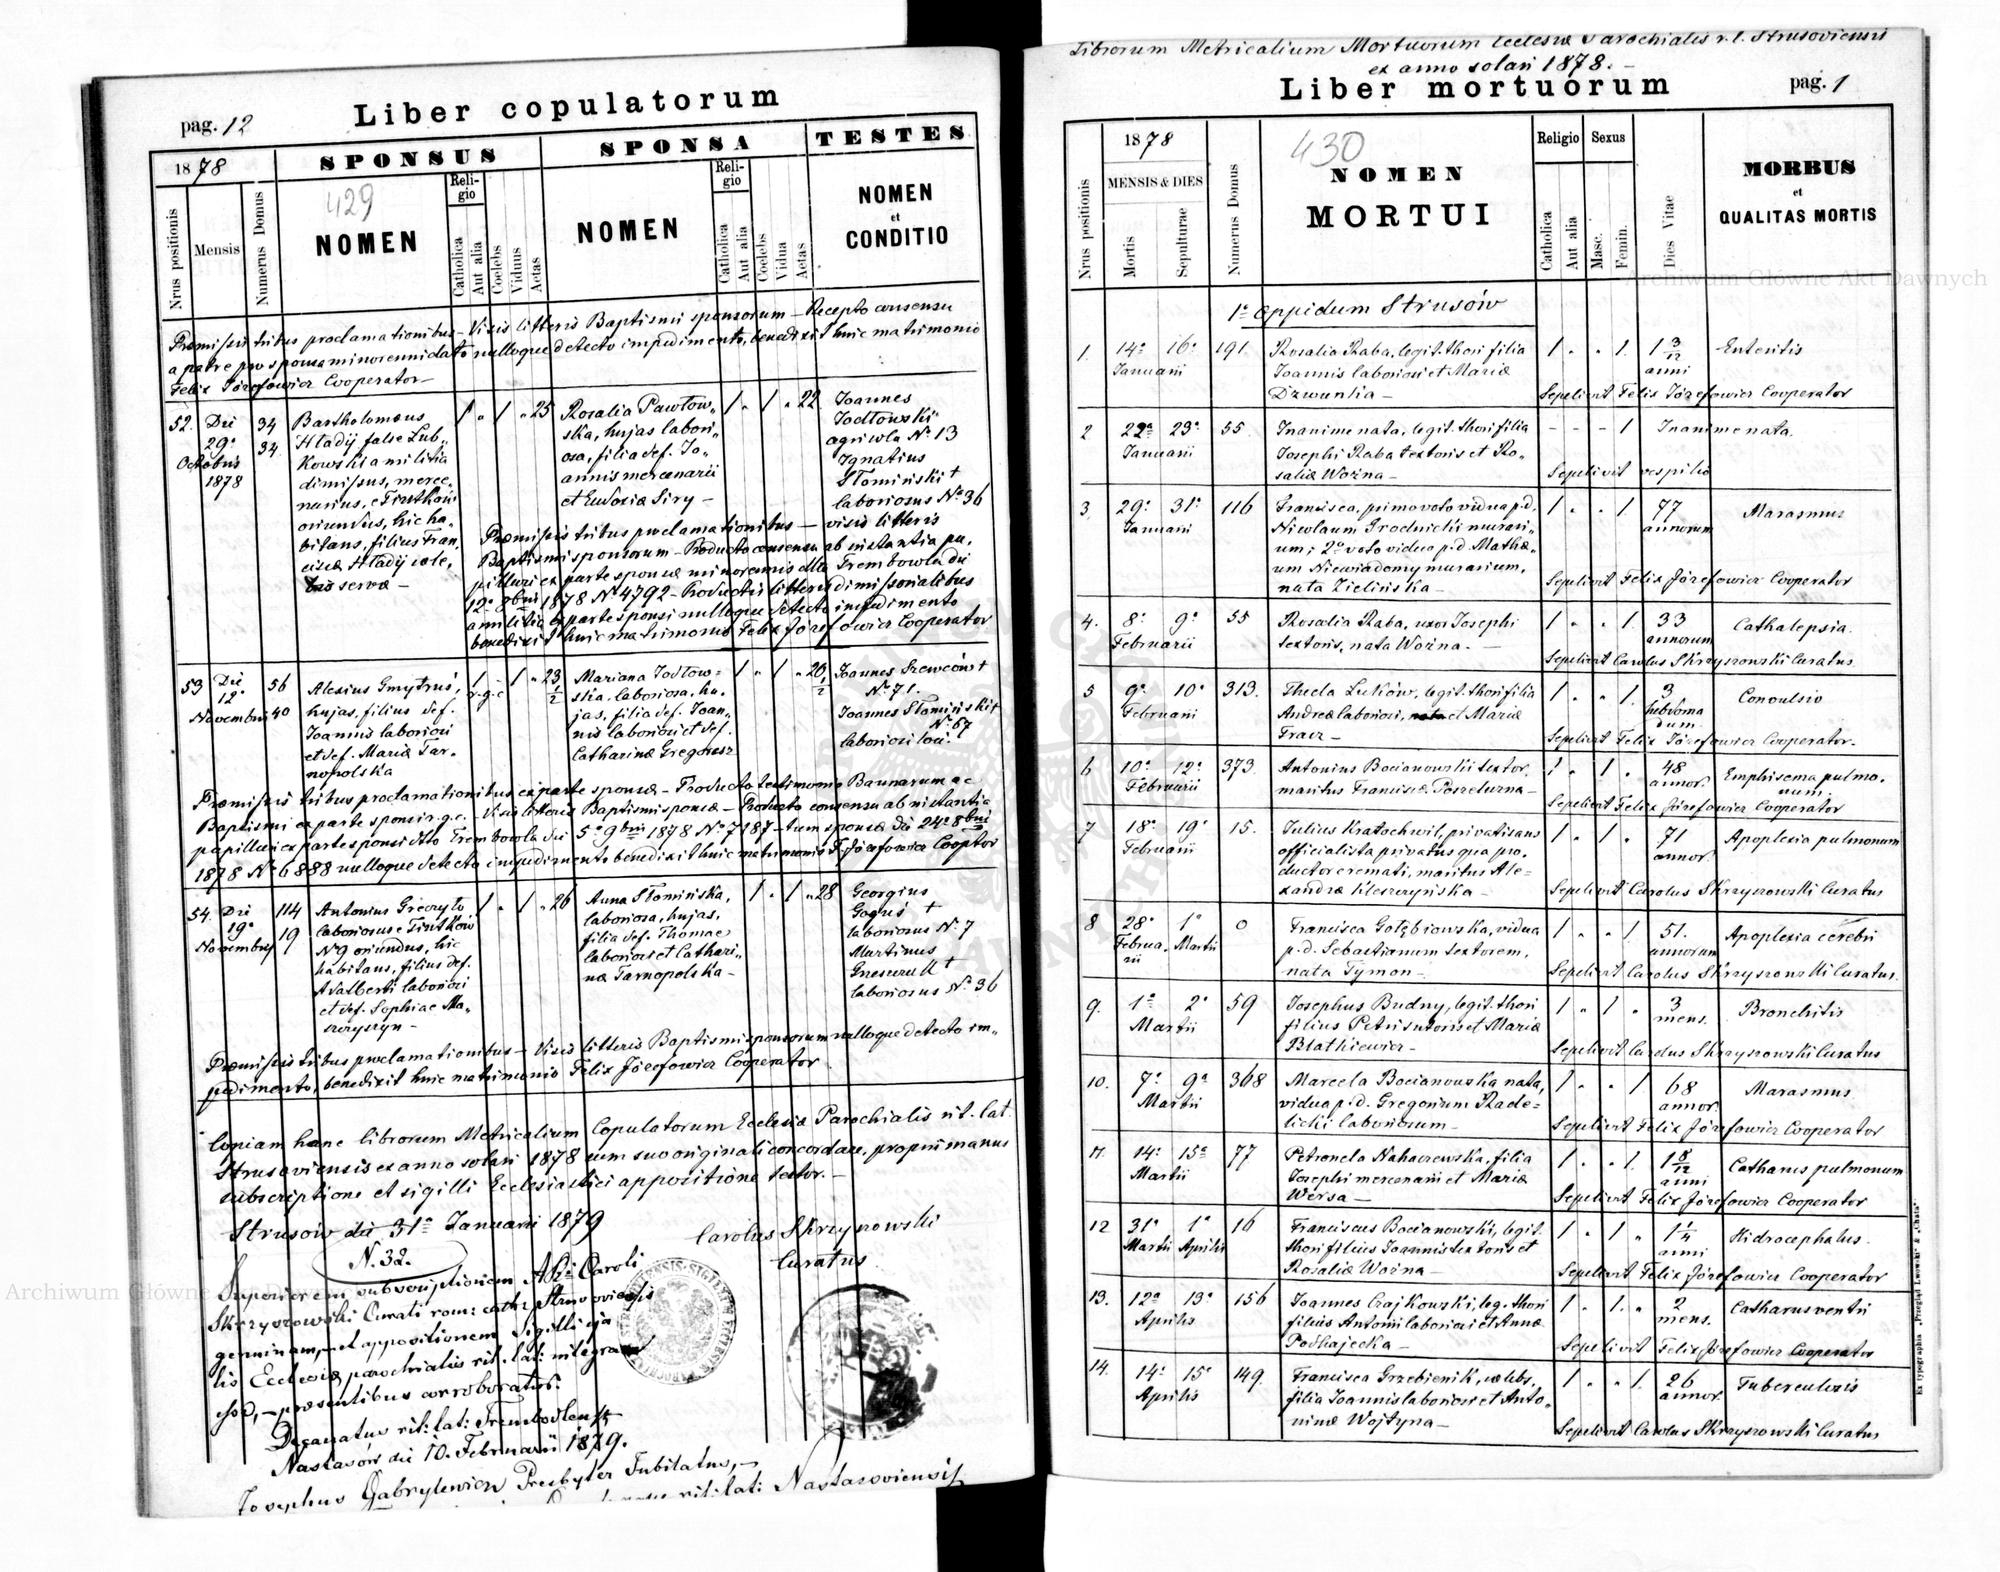 Liber copulatorum
pag. 12
1878
SPONSUS
SPONSA
TESTES
Nrus positionis
Mensis
Numerus Domus
429
NOMEN
Religio
Catholica
Aut alia
Coelebs
Viduus
Aetas
NOMEN
Religio
Catholica
Aut alia
Coelebs
Vidua
Aetas
NOMEN
et
CONDITIO
Præmissis tribus proclamationibus – Visis litteris Baptismi sponsorum – Recepto consensu
a patre pro sponsa minorenni dato nulloque detecto impedimento, benedixit huic matrimonio
Felix Józefowicz Cooperator –
52. Die 29ª Octobris 1878
34
34
Bartholomæus
Hładij false Lub„
kowski a militia
dimissus, merce„
narius, e Tiutków
oriundus, hic ha„
bitans, filius Fran„
ciscæ Hładij cæle„
bis servæ –
1 „ 1 „ 25
Rosalia Pawłow„
ska, hujas labori„
osa, filia def. Jo„
annis mercenarii
et Eudoxiæ Siry –
1 „ 1 „ 22
Joannes
Jodłowski
agricola Nº 13
Ignatius
Słomiński +
laboriosus Nº 36
Præmissis tribus proclamationibus – visis litteris
Baptismi sponsorum – Producto consensu ab instantia pu„
pillari ex parte sponsæ minorennis dtto Trembowla die
12ª 8bris 1878 Nº 4792 – Productis litteris dimissorialibus
a militia ex parte sponsi nulloque detecto impedimento
benedixit huic matrimonio Felix Józefowicz Cooperator
53 Die 12ª Novembris
56
40
Alexius Gmytruś,
hujas, filius def.
Joannis laboriosi
et def. Mariæ Tar„
nopolska
1 r.g.c „ 1 „ 23 1/2
Mariana Jodłow„
ska, laboriosa, hu„
jas, filia def. Joan„
nis laboriosi et def.
Catharinæ Gregorasz
1 „ 1 „ 20 1/2
Joannes Szewców +
Nº 71.
Joannes Słomiński +
Nº 67
laboriosi loci.
Præmissis tribus proclamationibus ex parte sponsæ – Producto testimonio Bannarum ac
Baptismi ex parte sponsi r.g.c. – Visis litteris Baptismi sponsæ – Producto consensu ab instantia
papillari ex parte sponsi dtto Trembowla die 5ª 9bris 1878 Nº 7187 – tum sponsæ die 24ª 8bris
1878 Nº 6888 nulloque detecto impedimento benedixit huic matrimonio F. Józefowicz Cooptor
54. Die 19ª Novembris
114
19
Antonius Greczyło
laboriosus e Tiutków
Nº 9 oriundus, hic
habitans, filius def.
Adalberti laboriosi
et def. Sophiae Ma„
szczyszyn –
1 „ 1 „ 26
Anna Słomińska,
laboriosa, hujas,
filia def. Thomae
laboriosi et Cathari„
næ Tarnopolska –
1 „ 1 „ 28
Georgius
Goguś +
laboriosus Nº 7
Martinus
laboriosus Nº 36
Præmissis tribus proclamationibus – Visis litteris Baptismi sponsorum nulloque detecto im„
pedimento, benedixit huic matrimonio Felix Józefowicz Cooperator
Copiam hanc librorum Metricalium Copulatorum Ecclesiæ Parochialis rit. lat.
Strusoviensis ex anno solari 1878 cum suo originali concordare, proprii manus
subscriptione et sigilli Ecclesiastici appositione testor. –
Strusów die 31ª Januarii 1879
Carolus Skrzyszowski
Curatus
N. 32.
Superiorem subscriptionem ARi Caroli
Skrzyszowski Curati rom: cath: Strusoviensis
genuinam, et appositionem Sigilli ejus
Ecclesiæ parochialis rit. lat: integram
præsentibus corroboratur.
Decanatus rit: lat: Trembovlensis
Nastasów die 10. Februarii 1879.
Josephus Gabrylewicz Presbyter Jubilatus, –
rit: lat: Nastasoviensis
Librorum Metricalium Mortuorum Ecclesiæ Parochialis r. l. Strusoviensis
ex anno solari 1878. –
Liber mortuorum
pag. 1
Nrus positionis
1878
MENSIS & DIES
Mortis
Sepulturae
Numerus Domus
430
NOMEN
MORTUI
Religio
Catholica
Aut alia
Sexus
Masc.
Femin.
Dies Vitae
MORBUS
et
QUALITAS MORTIS
1º oppidum Strusów
1. 14ª 16ª Januarii 191.
Rosalia Raba, legit. thori filia
Joannis laboriosi et Mariæ
Dzwunka –
1 „ „ 1. 1 3/12 anni
Enteritis
Sepelivit Felix Józefowicz Cooperator
2 22ª 23ª Januarii 55.
Inanime nata, legit. thori filia
Josephi Raba textoris et Ro„
saliæ Woźna –
– – – 1
Inanime nata.
Sepelivit vespilio
3. 29ª 31ª Januarii 116
Francisca, primo voto vidua p.d.
Nicolaum Prodnicki murari„
um; 2º voto vidua p.d. Mathæ„
um Niewiadomy murarium,
nata Zielińska –
1 „ „ 1 77 annorum
Marasmus
Sepelivit Felix Józefowicz Cooperator
4. 8ª 9ª Februarii 55
Rosalia Raba, uxor Josephi
textoris, nata Woźna. –
1 „ „ 1. 33 annorum
Cathalepsia.
Sepelivit Carolus Skrzyszowski Curatus
5 9ª 10ª Februarii 313.
Thecla Luków, legit. thori filia
Andreæ laboriosi, nata et Mariæ
Tracz –
1 „ „ 1. 3 hebdoma dum.
Convulsio
Sepelivit Felix Józefowicz Cooperator.
6 10ª 12ª Februarii 373.
Antonius Bocianowski textor,
maritus Franciscæ
1 „ 1 „ 48 annor.
Emphisema pulmo„
num.
Sepelivit Felix Józefowicz Cooperator
7 18ª 19ª Februarii 15.
Julius Kratochwil, privatisans
officialista privatus qua pro„
ductor cremati, maritus Ale„
xandræ Kleszczyńska –
1 „ 1 „ 71 annor.
Apoplexia pulmonum
Sepelivit Carolus Skrzyszowski Curatus
8 28ª Februa„ rii 1ª Martii 0
Francisca Gołębiowska, vidua
p. d. Sebastianum textorem,
nata Tymon –
1 „ „ 1 51. annorum
Apoplexia cerebri
Sepelivit Carolus Skrzyszowski Curatus.
9. 1ª 2ª Martii 59
Josephus Budny, legit. thori
filius Petri sutoris et Mariæ
Błatkiewicz –
1 „ 1 „ 3 mens.
Bronchitis
Sepelivit Carolus Skrzyszowski Curatus
10. 7ª 9ª Martii 368
Marcela Bocianowska nata,
vidua p. d. Gregorium Rade„
licki laboriosum –
1 „ „ 1 68 annor.
Marasmus
Sepelivit Felix Józefowicz Cooperator
11. 14ª 15ª Martii 77
Petronela Nahaczewska, filia
Josephi mercenarii et Mariæ
Wersa –
1 „ „ 1. 1 8/12 anni
Catharus pulmonum
Sepelivit Felix Józefowicz Cooperator
12 31ª Martii 1ª Aprilis 16
Franciscus Bocianowski, legit.
thori filius Joannis textoris et
Rosaliæ Woźna –
1 „ 1 „ 1 1/4 anni
Hidrocephalus.
Sepelivit Felix Józefowicz Cooperator
13. 12ª 13ª Aprilis 156
Joannes Czajkowski, leg. thori
filius Antonii laboriosi et Annæ
Podhajecka –
1 „ 1. „ 2 mens.
Catharus ventri
Sepelivit Felix Józefowicz Cooperator
14. 14ª 15ª Aprilis 149.
Francisca Grzebienik, cælebs,
filia Joannis laboriosi et Anto„
ninæ Wojtyna –
1 „ „ 1. 26 annor.
Tuberculosis
Sepelivit Carolus Skrzyszowski Curatus
Ex typographia „Przegląd Lwowski" & „Chata".
Archiwum Główne Akt Dawnych
Archiwum Główne